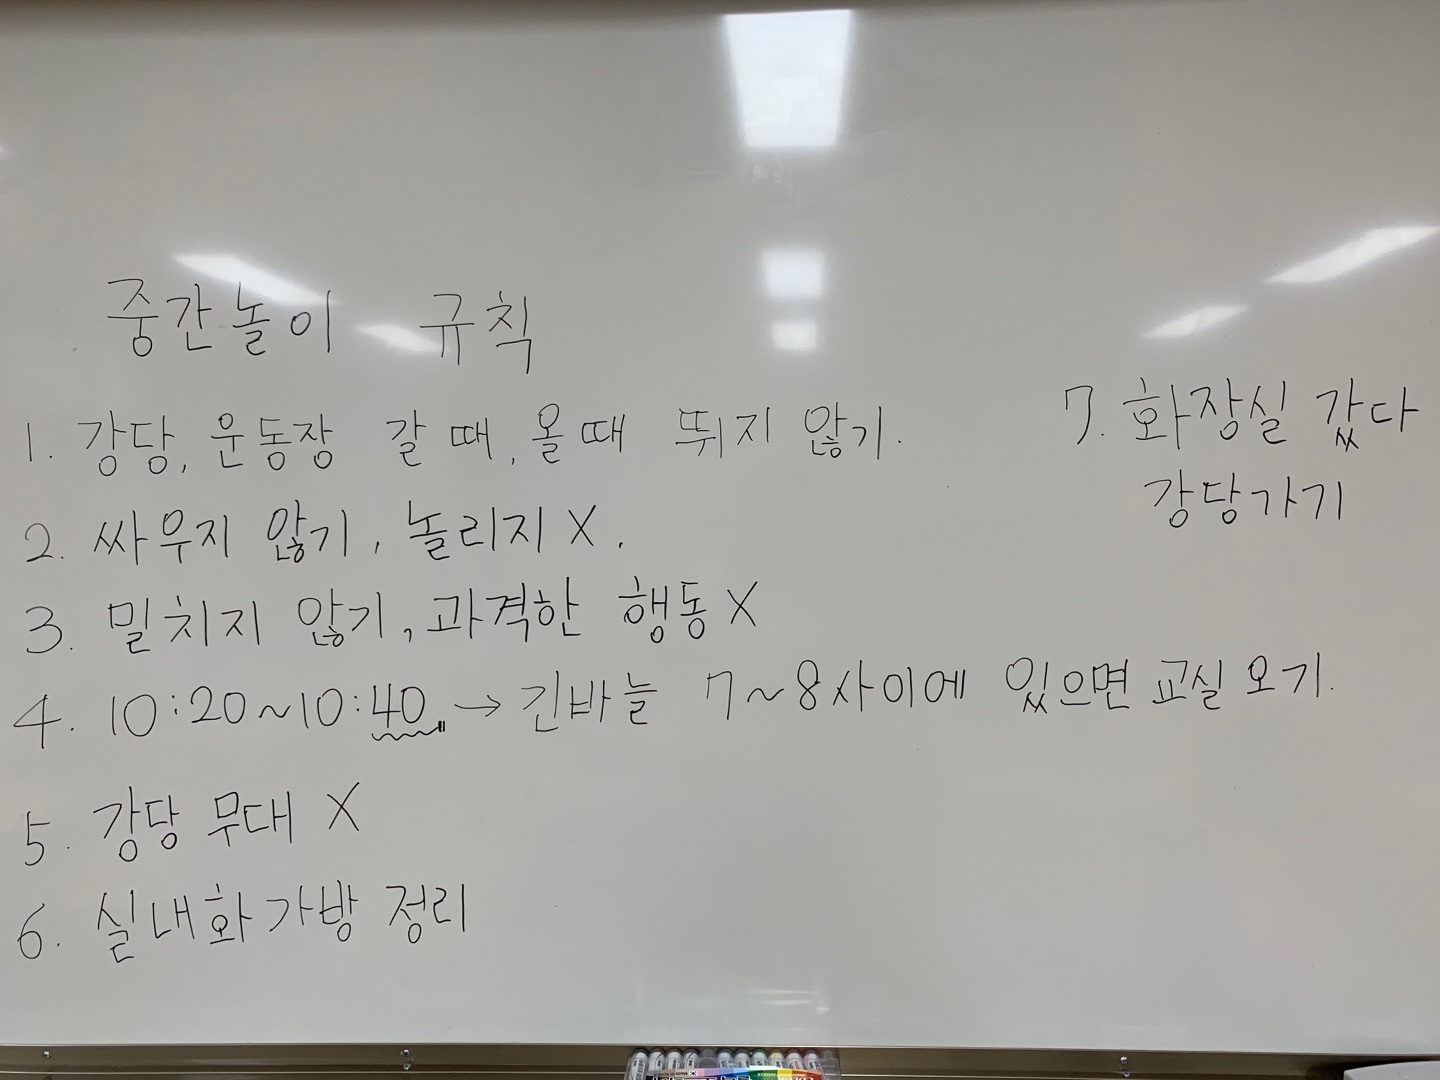 중간놀이 규칙
1. 강당, 운동장 갈 때, 올때 뛰지 않기.
2. 싸우지 않기, 놀리지 X.
3. 밀치지 않기, 과격한 행동 X
4. 10:20~10:40 → 긴바늘 7~8사이에 있으면 교실 오기.
5. 강당 무대 X
6. 실내화 가방 정리
7. 화장실 갔다
강당가기